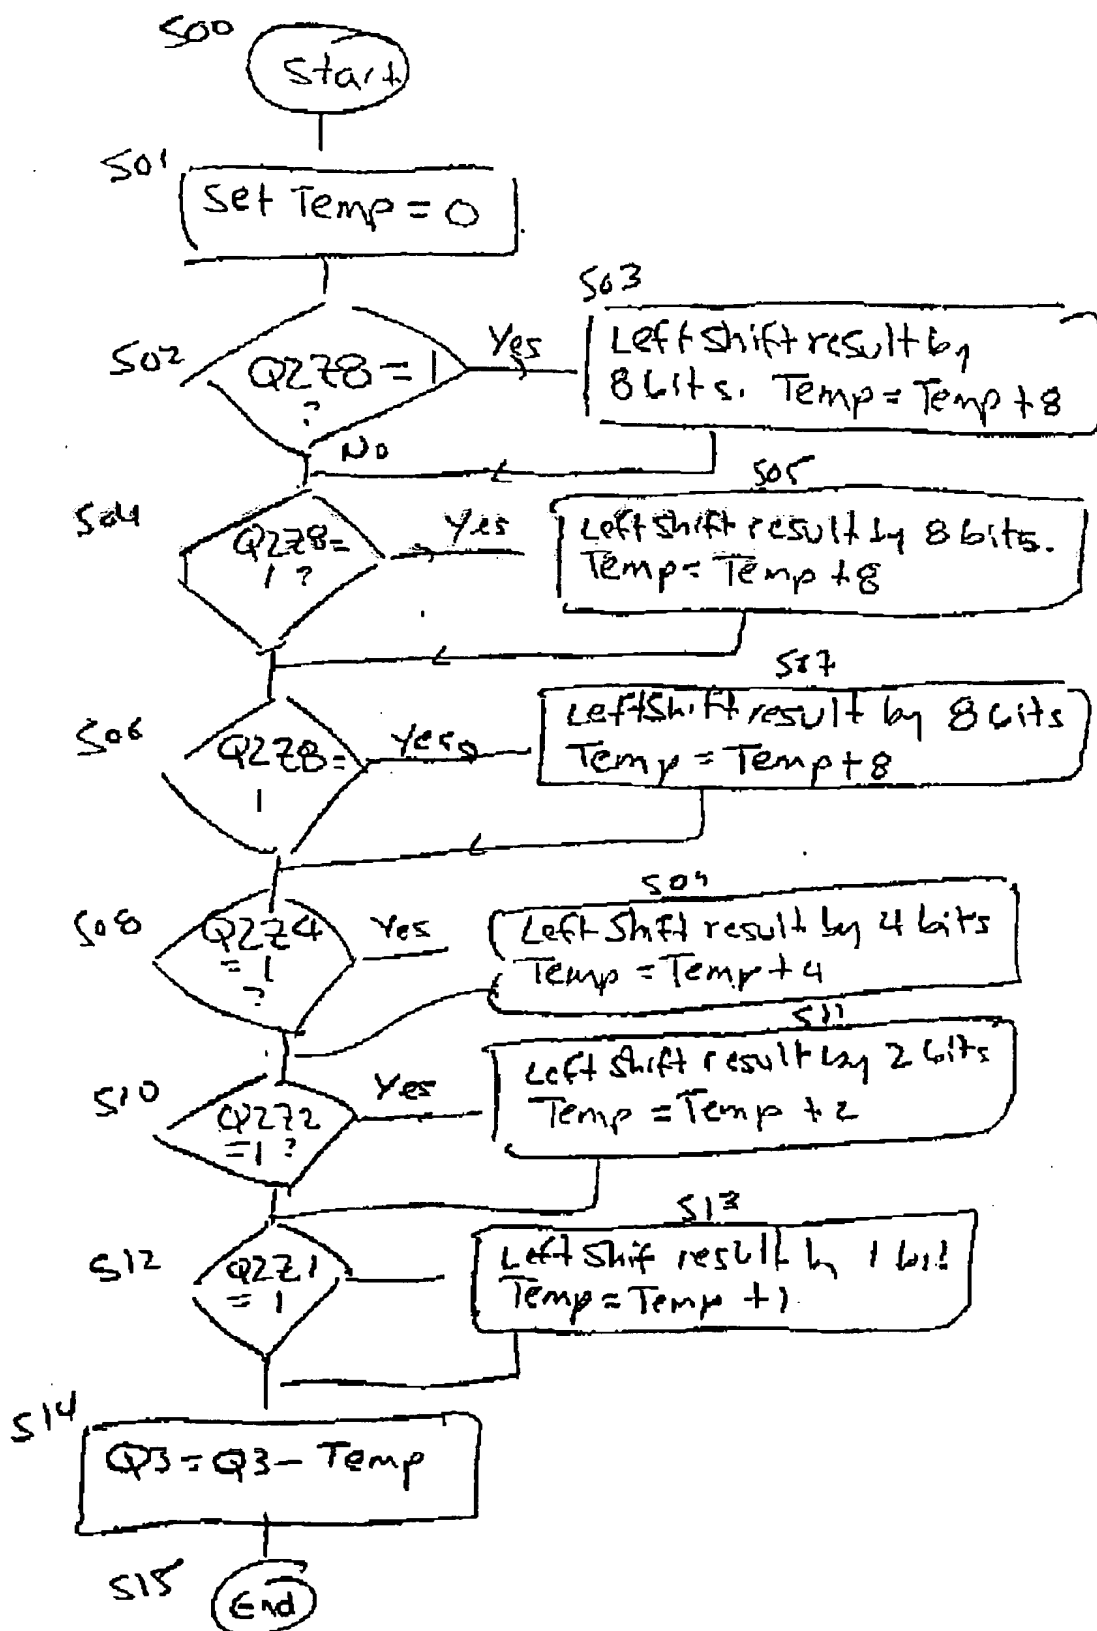 S00
Start
S01
Set Temp = 0
S02
Q2Z8 = 1
?
Yes
No
S03
Left shift result by
8 bits. Temp = Temp + 8
S04
Q2Z8 =
1 ?
Yes
S05
Left shift result by 8 bits.
Temp = Temp + 8
S06
Q2Z8 =
1
Yes
S07
Left Shift result by 8 bits
Temp = Temp + 8
S08
Q2Z4
= 1
?
Yes
S09
Left Shift result by 4 bits
Temp = Temp + 4
S10
Q2Z2
= 1 ?
Yes
S11
Left Shift result by 2 bits
Temp = Temp + 2
S12
Q2Z1
= 1
S13
Left Shif result by 1 bit
Temp = Temp + 1
S14
Q3 = Q3 - Temp
S15
End